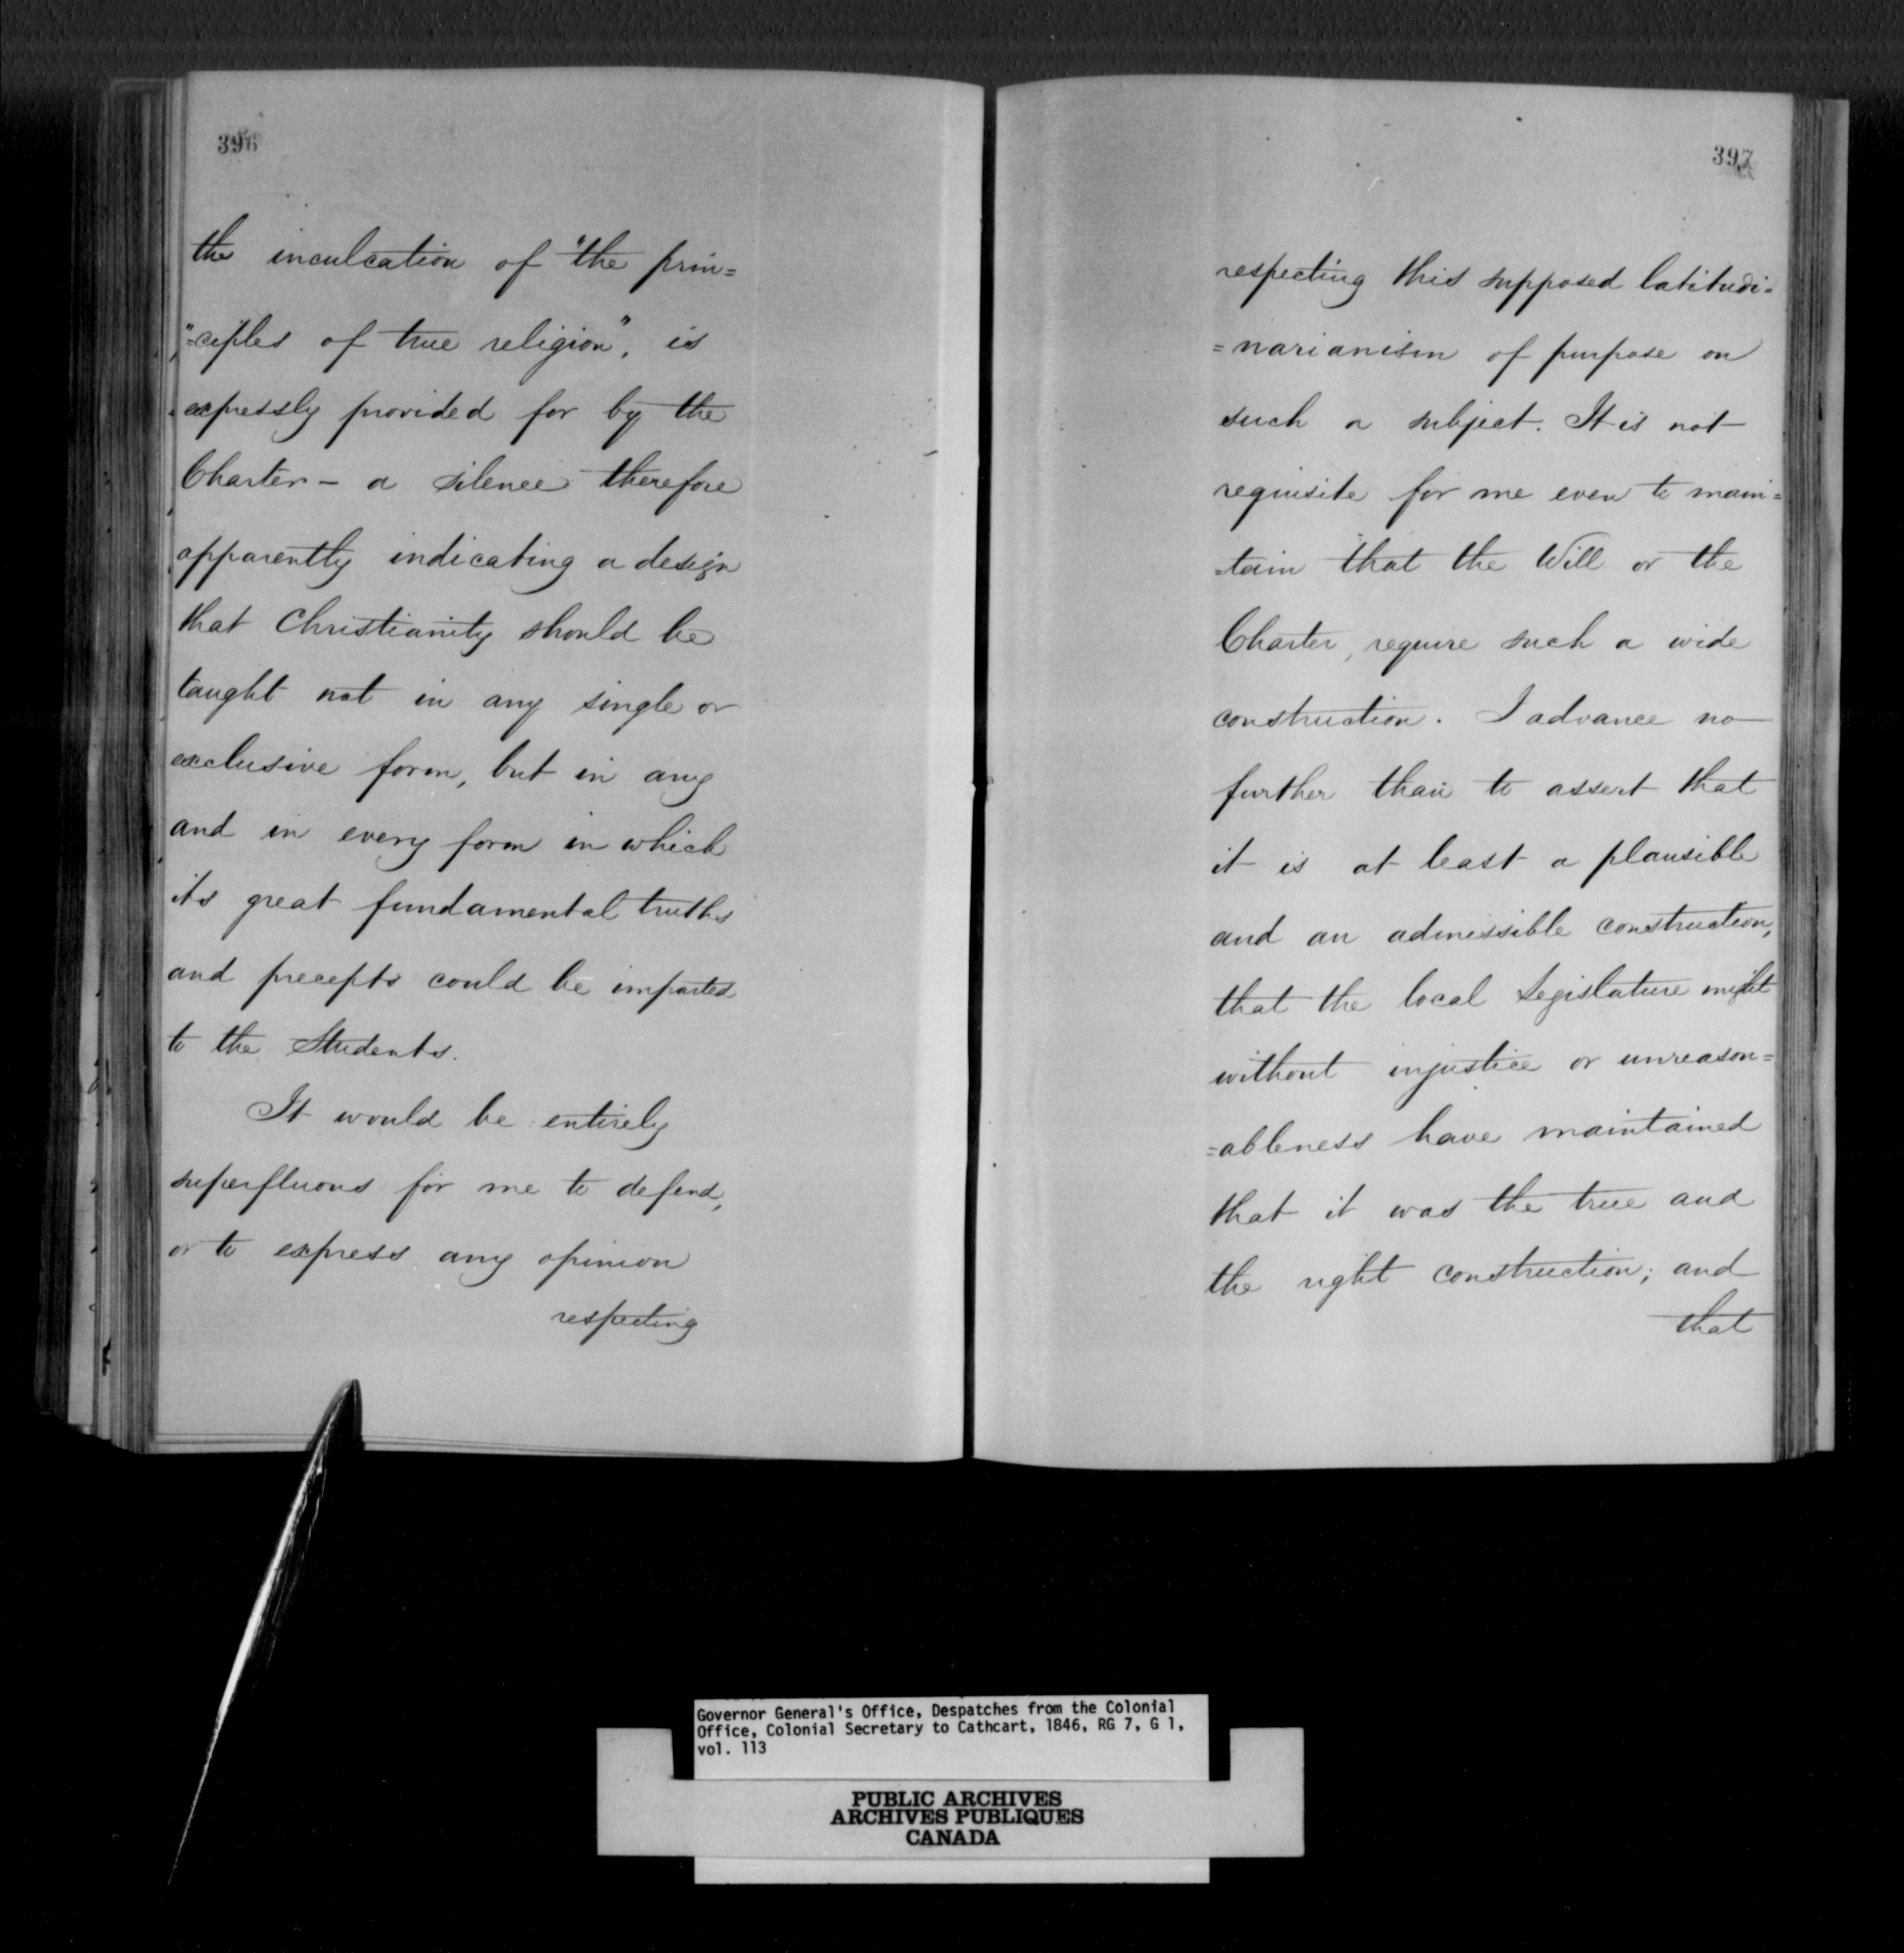 396
the inculcation of "the prin=
"=ciples of true religion", is
expressly provided for by the
Charter - a silence therefore
apparently indicating a design
that Christianity should be
taught not in any single or
exclusive form, but in any
and in every form in which
its great fundamental truths
and precepts could be imparted
to the Students.
It would be entirely
superfluous for me to defend,
or to express any opinion
respecting
397
respecting this supposed latitudi=
=narianism of purpose on
such a subject. It is not
requisite for me even to main=
=tain that the Will or the
Charter, require such a wide
construction. I advance no
further than to assert that
it is at least a plausible
and an admissible construction,
that the local Legislature might
without injustice or unreason=
=ableness have maintained
that it was the true and
the right construction; and
that
Governor General's Office, Despatches from the Colonial
Office, Colonial Secretary to Cathcart, 1846, RG 7, G 1,
vol. 113
PUBLIC ARCHIVES
ARCHIVES PUBLIQUES
CANADA